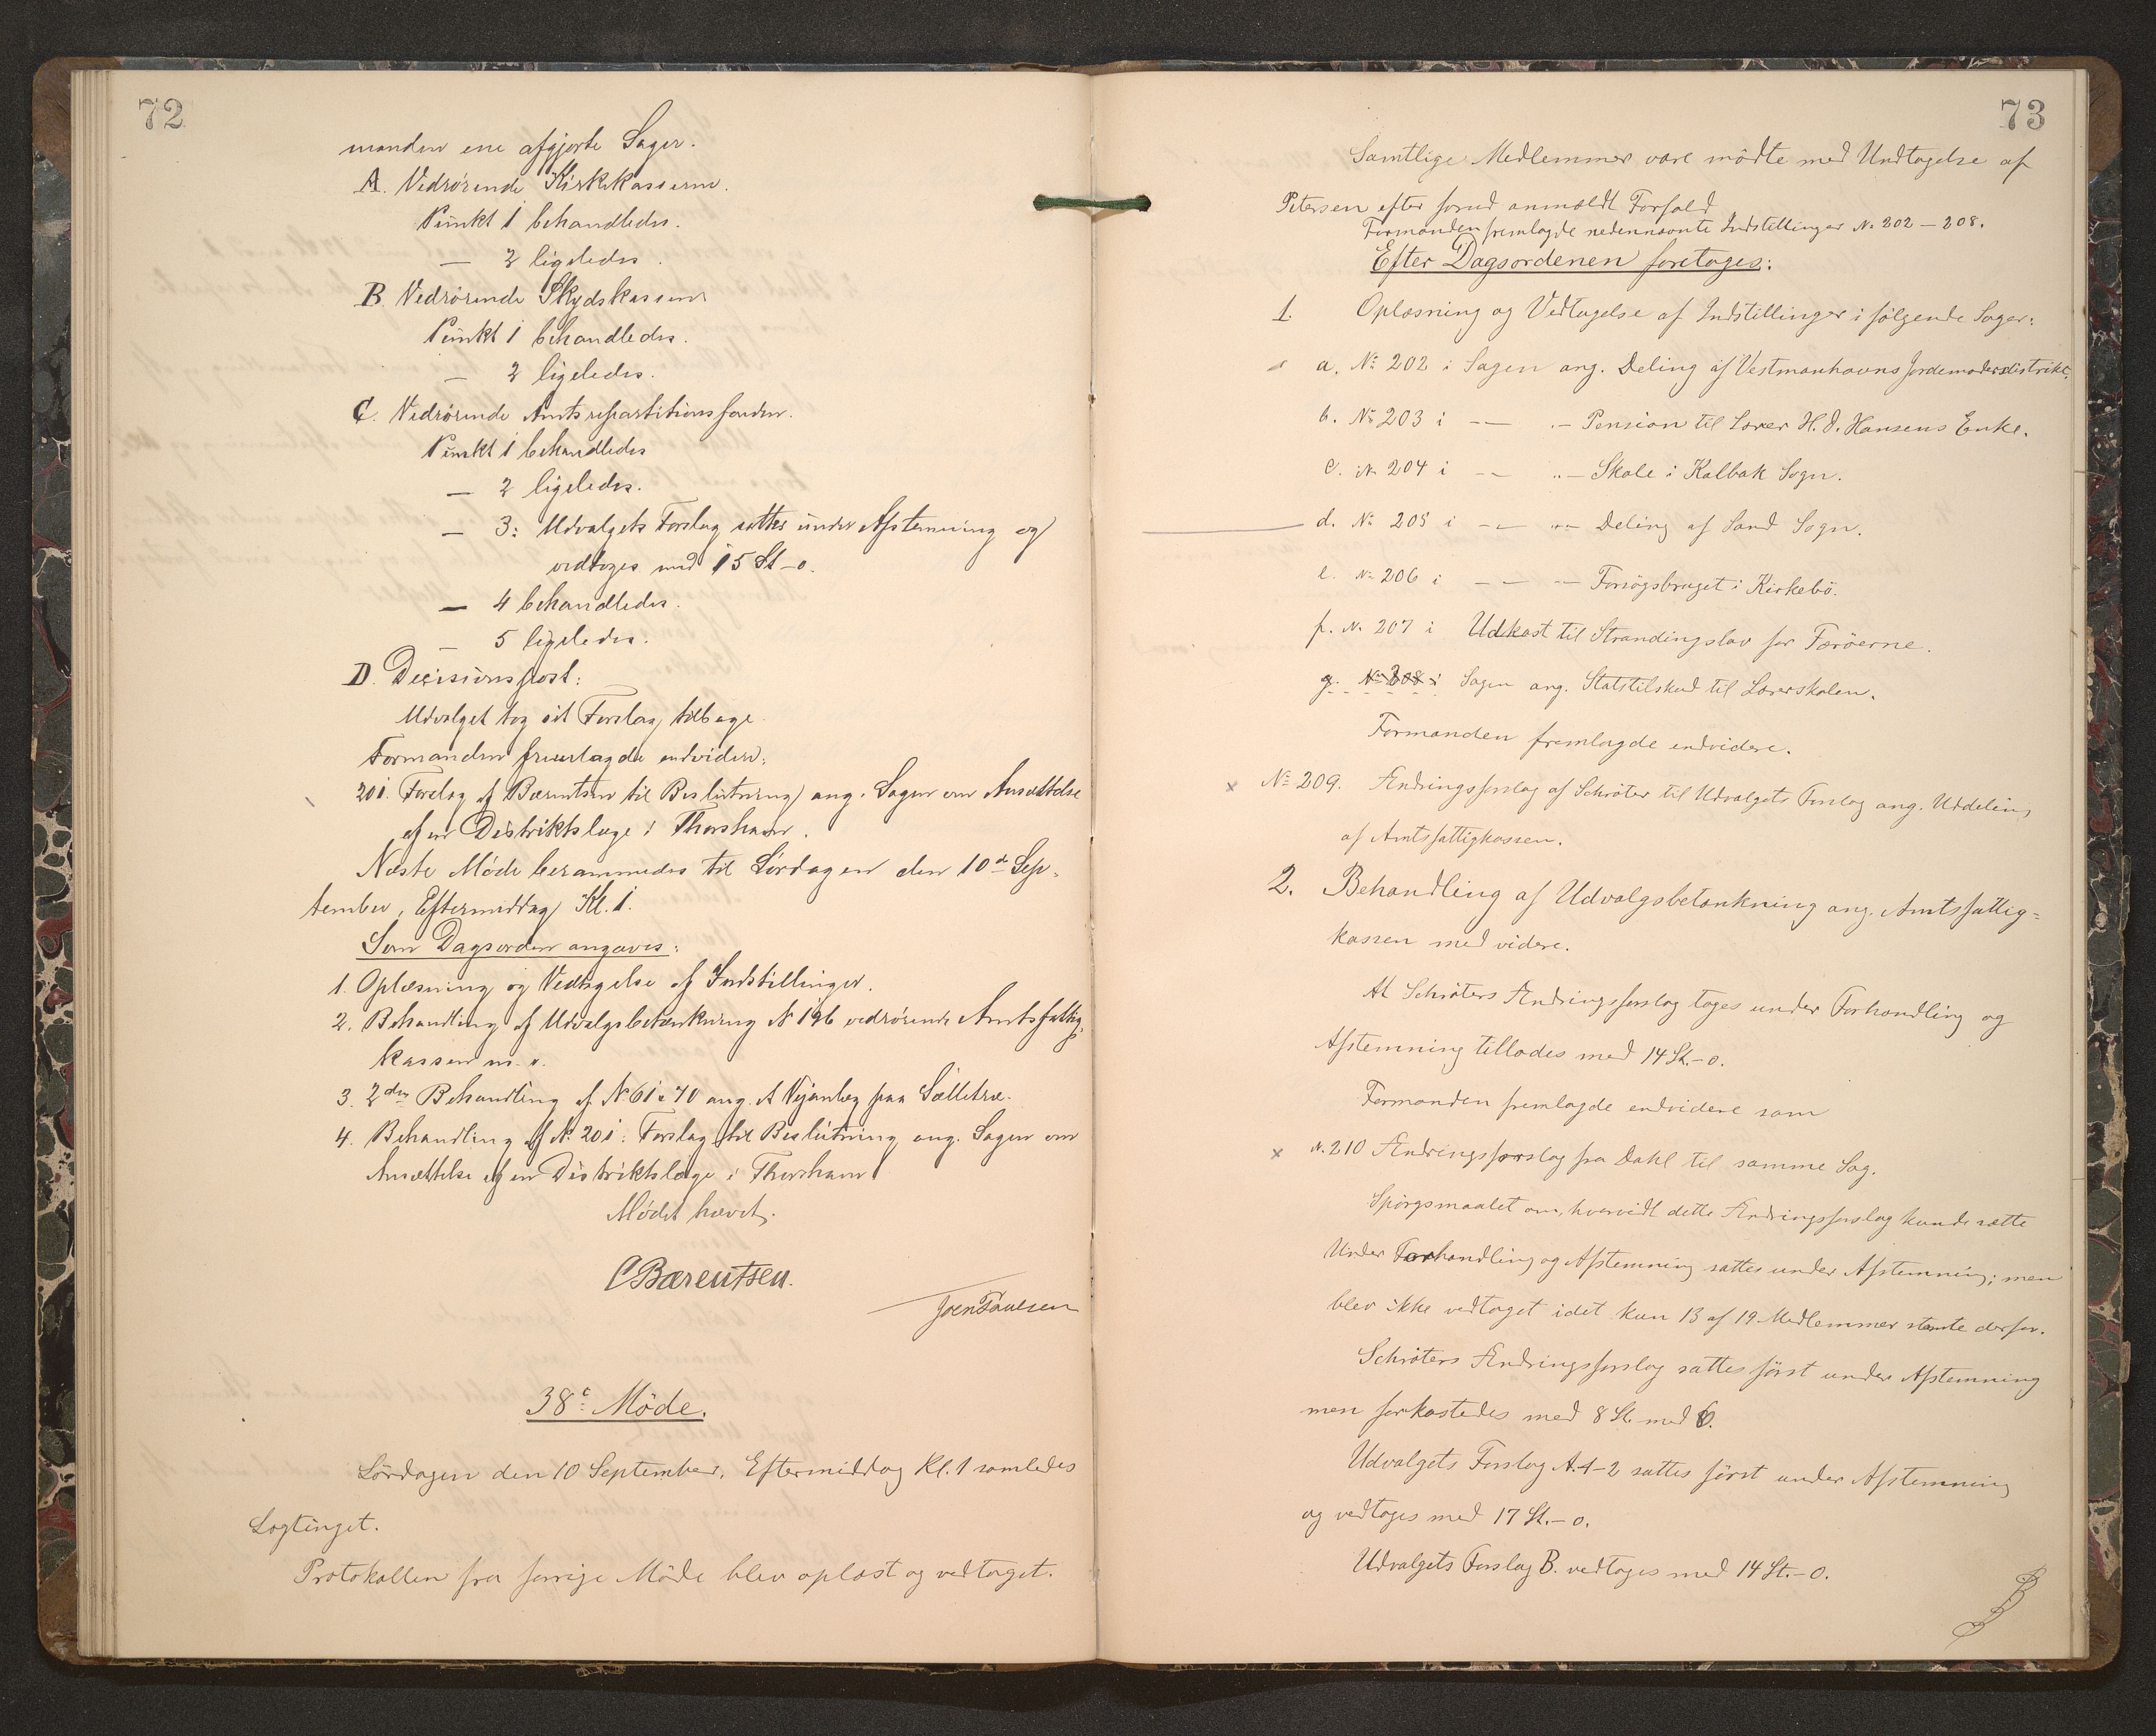 72
manden ene afgjorte Sager.
A. Vedrörende Kirkekasserne.
Punkt 1 behandledes.
— 2 ligeledes.
B. Vedrörende Skydskassen
Punkt 1 behandledes.
— 2 ligeledes.
C. Vedrörende Amtsrepartitionsfonden.
Punkt 1 behandledes
— 2 ligeledes.
— 3: Udvalgets Forslag sattes under Afstemning og
vedtoges med 15 St - 0.
— 4 behandledes.
— 5 ligeledes.
D. Decisionspost:
Udvalget tog sit Forslag tilbage.
Formanden fremlagde endvidere:
201. Forslag af Bærentsen til Beslutning ang. Sagen om Ansættelse
af en Distriktslæge i Thorshavn.
Næste Møde berammedes til Lørdagen den 10de Sep-
tember, Eftermiddag Kl. 1.
Som Dagsorden angaves:
1. Oplæsning og Vedtagelse af Indstillinger.
2. Behandling af Udvalgsbetænkning No 196 vedrørende Amtsfattig-
kassen m. v.
3. 2den Behandling af No 61 & 70 ang. et Vejanlæg paa Sælletræ.
4. Behandling af No 201: Forslag til Beslutning ang. Sagen om
Ansættelse af en Distriktslæge i Thorshavn
Mødet hævet.
C Bærentsen.
Joen Poulsen
38e Möde.
Lördagen den 10 September, Eftermiddag Kl. 1 samledes
Lagtinget.
Protokollen fra forrige Möde blev oplæst og vedtaget.
73
Samtlige Medlemmer vare mödte med Undtagelse af
Petersen efter forud anmeldt Forfald
Formanden fremlagde nedennævnte Indstillinger No 202 - 208.
Efter Dagsordenen foretoges:
1. Oplæsning og Vedtagelse af Indstillinger i fölgende Sager:
a. No 202 i Sagen ang. Deling af Vestmanhavns Jordemoderdistrikt.
b. No 203 i — — Pension til Lærer H. J. Hansens Enke.
c. No 204 i — — Skole i Kalbak Sogn.
d. No 205 i — — Deling af Sand Sogn.
e. No 206 i — — Forsögsbruget i Kirkebö.
f. No 207 i Udkast til Strandingslov for Færöerne.
g. No 208 i Sagen ang. Statstilskud til Lærerskolen.
Formanden fremlagde endvidere.
x No 209. Ændringsforslag af Schröter til Udvalgets Forslag ang. Uddeling
af Amtsfattigkassen.
2. Behandling af Udvalgsbetænkning ang. Amtsfattig-
kassen med videre.
At Schröters Ændringsforslag toges under Forhandling og
Afstemning tillodes med 14 St. - 0.
Formanden fremlagde endvidere som
x No 210 Ændringsforslag fra Dahl til samme Sag.
Spörgsmaalet om, hvorvidt dette Ændringsforslag kunde sætte
Under Forhandling og Afstemning sattes under Afstemning; men
blev ikke vedtaget idet kun 13 af 19 Medlemmer stemte derfor.
Schröters Ændringsforslag sattes först under Afstemning
men forkastedes med 8 St. mod 6.
Udvalgets Forslag A. 1-2 sattes först under Afstemning
og vedtoges med 17 St. - 0.
Udvalgets Forslag B. vedtoges med 14 St. - 0.